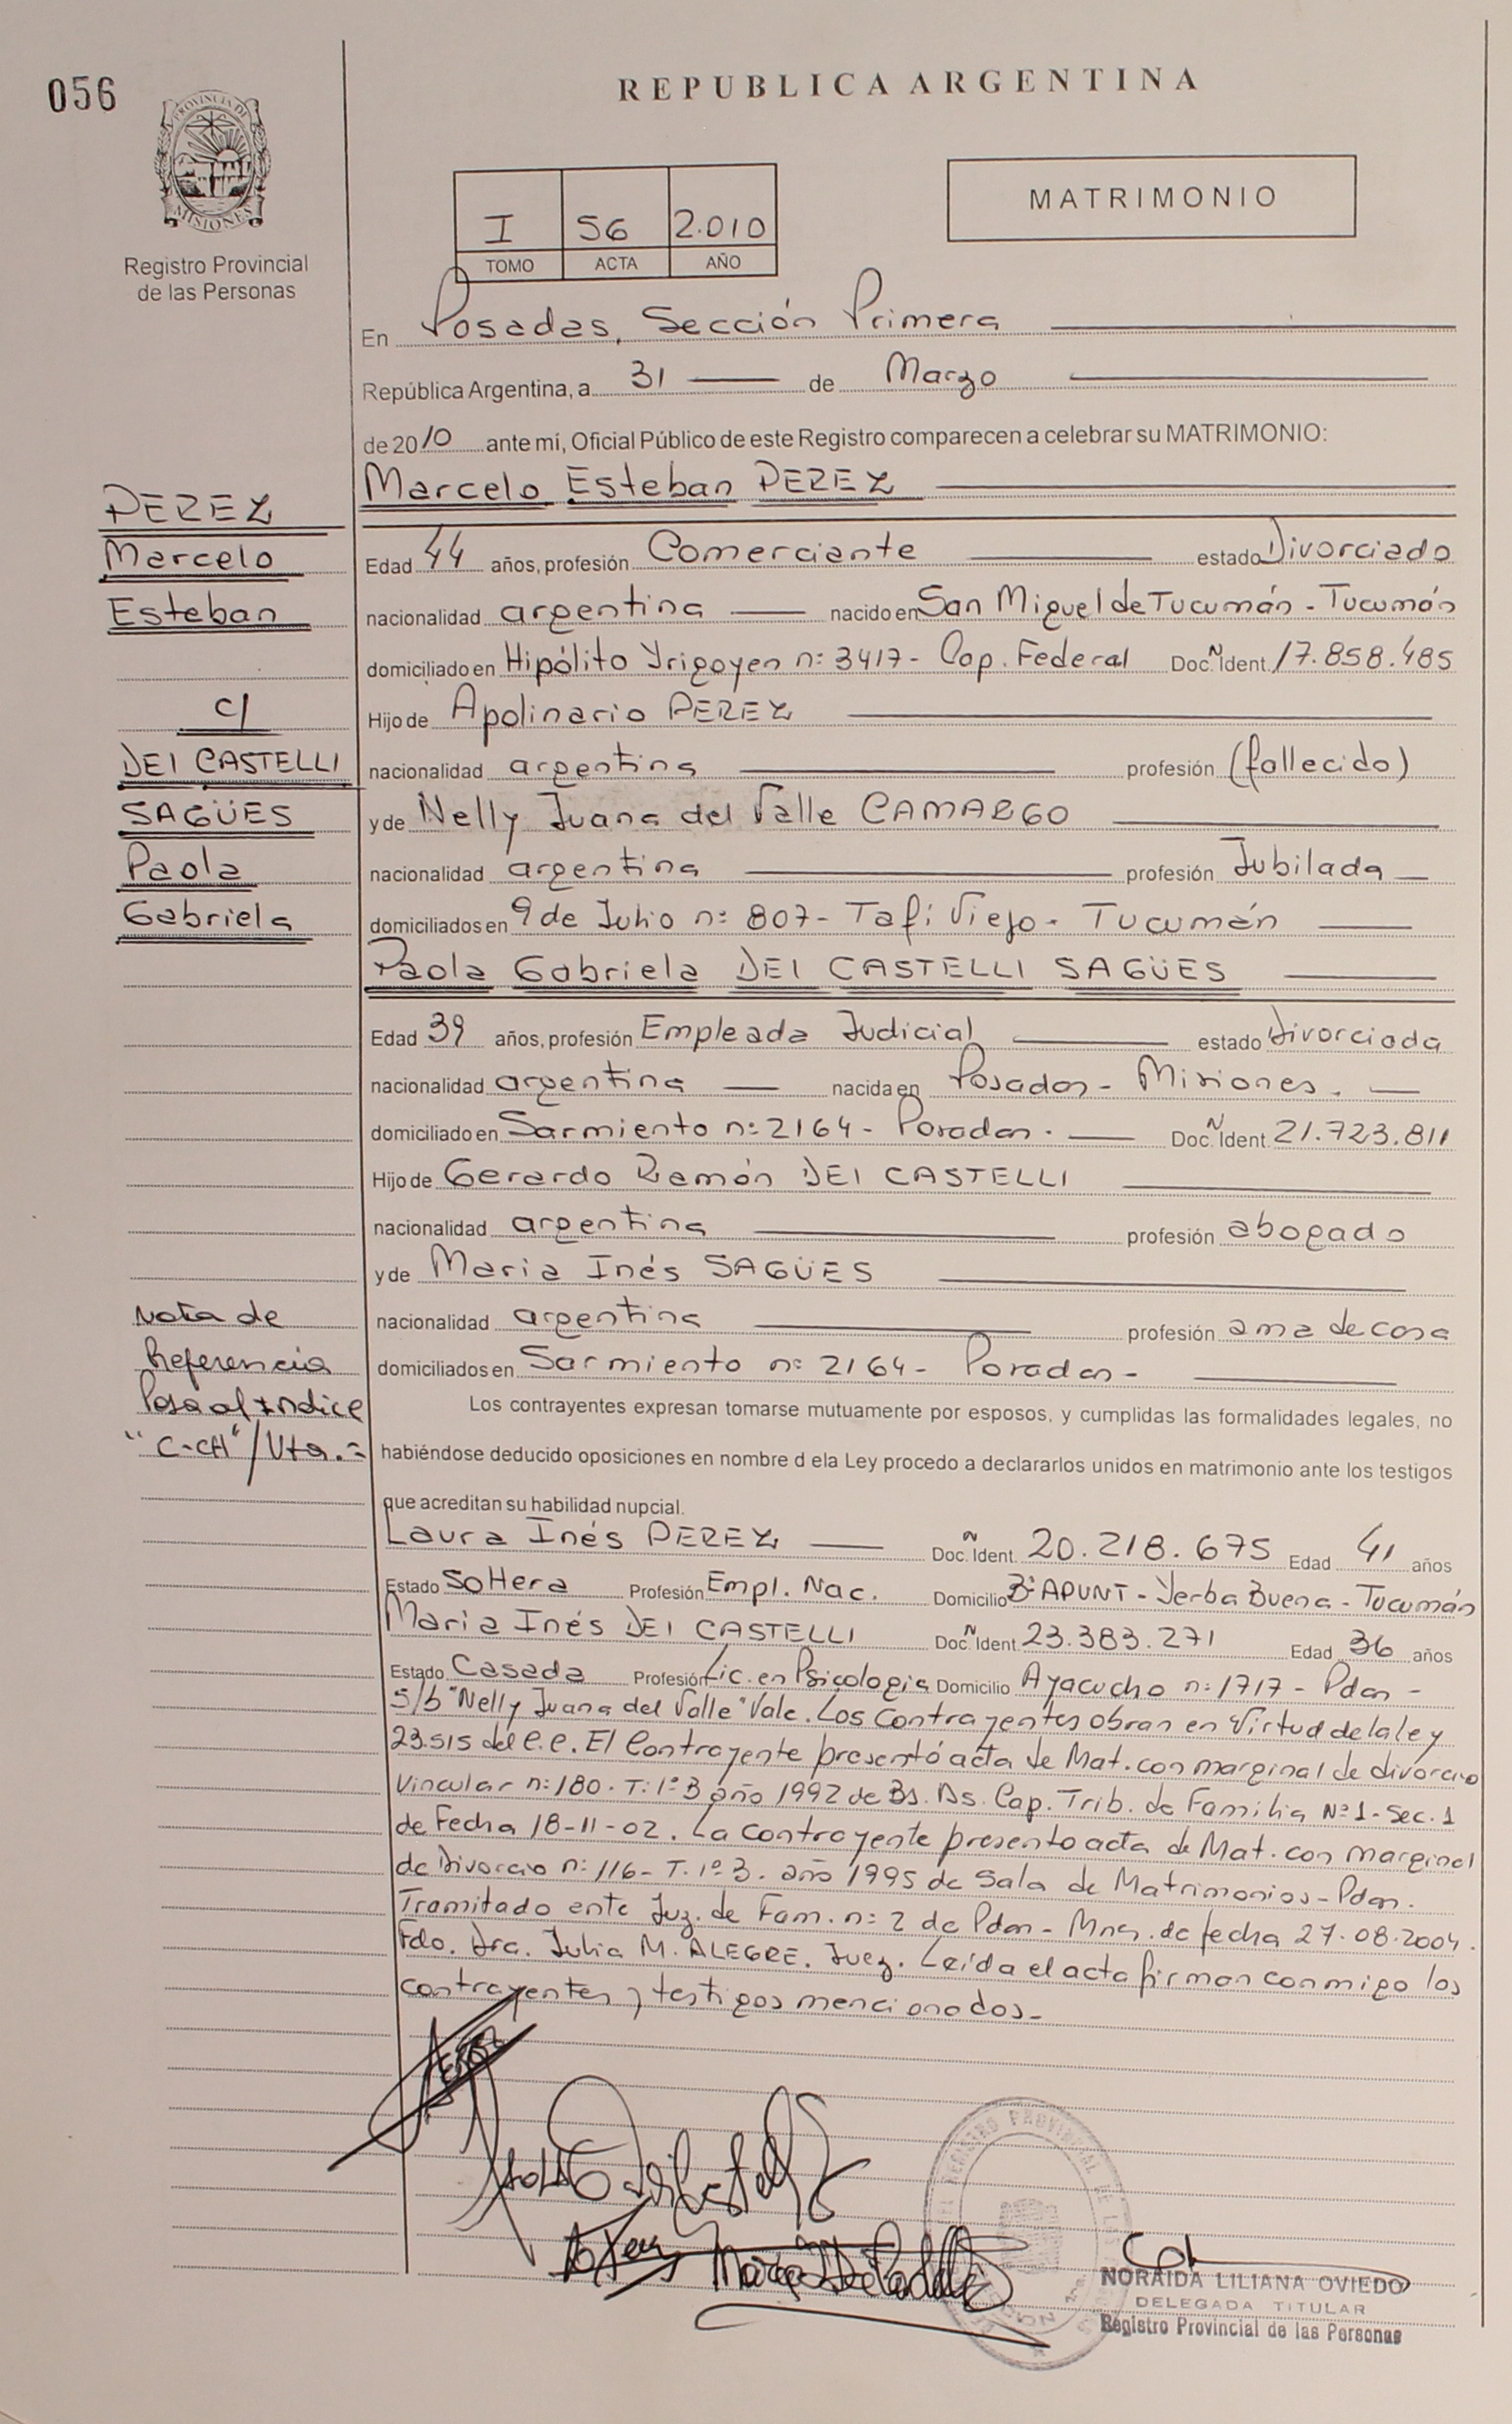 056
PROVINCIA DE
MISIONES
Registro Provincial
de las Personas
REPUBLICA ARGENTINA
MATRIMONIO
I 56 2.010
TOMO ACTA AÑO
En Posadas, Sección Primera
República Argentina, a 31 de Marzo
de 2010 ante mí, Oficial Público de este Registro comparecen a celebrar su MATRIMONIO:
PEREZ
Marcelo
Esteban
c/
DEI CASTELLI
SAGÜES
Paola
Gabriela
Marcelo Esteban PEREZ
Edad 44 años, profesión Comerciante estado Divorciado
nacionalidad argentina nacido en San Miguel de Tucumán - Tucumán
domiciliado en Hipólito Yrigoyen n: 3417 - Cap. Federal Doc. N Ident. 17.858.485
Hijo de Apolinario PEREZ
nacionalidad argentina profesión (fallecido)
y de Nelly Juana del Valle CAMARGO
nacionalidad argentina profesión Jubilada
domiciliados en 9 de Julio n: 807 - Tafí Viejo - Tucumán
Paola Gabriela DEI CASTELLI SAGÜES
Edad 39 años, profesión Empleada Judicial estado Divorciada
nacionalidad argentina nacida en Posadas - Misiones.
domiciliado en Sarmiento n: 2164 - Posadas. Doc. N Ident. 21.723.811
Hijo de Gerardo Ramón DEI CASTELLI
nacionalidad argentina profesión abogado
y de Maria Inés SAGÜES
nacionalidad argentina profesión ama de casa
domiciliados en Sarmiento n: 2164 - Posadas -
Nota de
Referencia
Pasa al Indice
"C-CH"/Vta.=
Los contrayentes expresan tomarse mutuamente por esposos, y cumplidas las formalidades legales, no
habiéndose deducido oposiciones en nombre d ela Ley procedo a declararlos unidos en matrimonio ante los testigos
que acreditan su habilidad nupcial.
Laura Inés PEREZ Doc. N Ident. 20.218.675 Edad 41 años
Estado Soltera Profesión Empl. Nac. Domicilio Bº APUNT - Yerba Buena - Tucumán
Maria Inés DEI CASTELLI Doc. N Ident. 23.383.271 Edad 36 años
Estado Casada Profesión Lic. en Psicologia Domicilio Ayacucho n: 1717 - Pdas -
S/b "Nelly Juana del Valle" Vale. Los Contrayentes obran en Virtud de la ley
23.515 del C.C. El Contrayente presentó acta de Mat. con marginal de divorcio
Vincular n: 180. T: 1º 3 año 1992 de Bs. As. Cap. Trib. de Familia Nº 1 - Sec. 1
de Fecha 18-11-02. La Contrayente presento acta de Mat. con marginal
de Divorcio n: 116 - T. 1º 3. año 1995 de Sala de Matrimonios - Pdas.
Tramitado ente Juz. de Fam. n: 2 de Pdas - Mnes. de fecha 27.08.2004.
Fdo. Dra. Julia M. ALEGRE. Juez. Leída el acta firman conmigo los
contrayentes y testigos mencionados -
NORAIDA LILIANA OVIEDO
DELEGADA TITULAR
Registro Provincial de las Personas